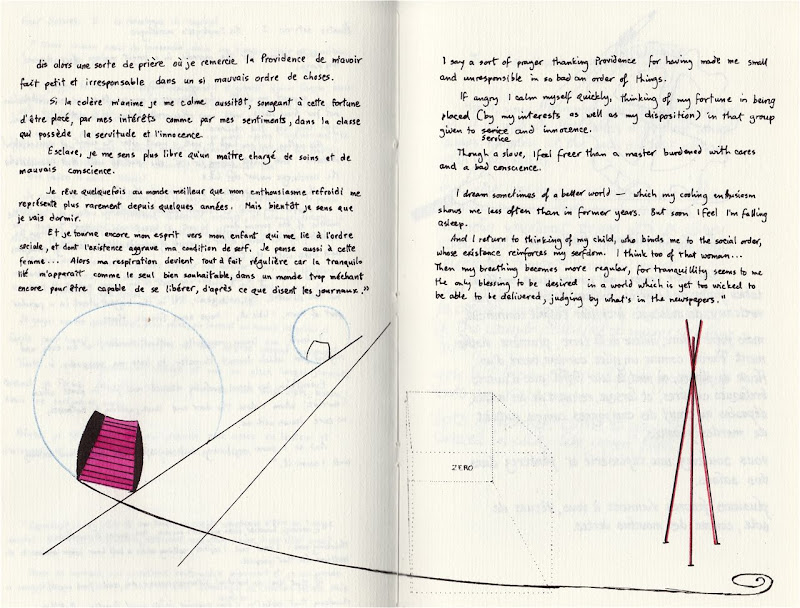 dis alors une sorte de prière où je remercie la Providence de m'avoir
fait petit et irresponsable dans un si mauvais ordre de choses.
Si la colère m'anime je me calme aussitôt, songeant à cette fortune
d'être placé, par mes intérêts comme par mes sentiments, dans la classe
qui possède la servitude et l'innocence.
Esclave, je me sens plus libre qu'un maître chargé de soins et de
mauvais conscience.
Je rêve quelquefois au monde meilleur que mon enthousiasme refroidi me
représente plus rarement depuis quelques années. Mais bientôt je sens que
je vais dormir.
Et je tourne encore mon esprit vers mon enfant qui me lie à l'ordre
sociale, et dont l'existence aggrave ma condition de serf. Je pense aussi à cette
femme... Alors ma respiration devient tout à fait régulière car la tranquil
lité m'apparaît comme le seul bien souhaitable, dans un monde trop méchant
encore pour être capable de se libérer, d'après ce que disent les journaux."
I say a sort of prayer thanking Providence for having made me small
and unresponsible in so bad an order of things.
If angry I calm myself quickly, thinking of my fortune in being
placed (by my interests as well as my disposition) in that group
given to service and innocence.
service
Though a slave, I feel freer than a master burdened with cares
and a bad conscience.
I dream sometimes of a better world — which my cooling enthusiasm
shows me less often than in former years. But soon I feel I'm falling
asleep.
And I return to thinking of my child, who binds me to the social order,
whose existence reinforces my serfdom. I think too of that woman...
Then my breathing becomes more regular, for tranquillity seems to me
the only blessing to be desired in a world which is yet too wicked to
be able to be delivered, judging by what's in the newspapers."
ZERO